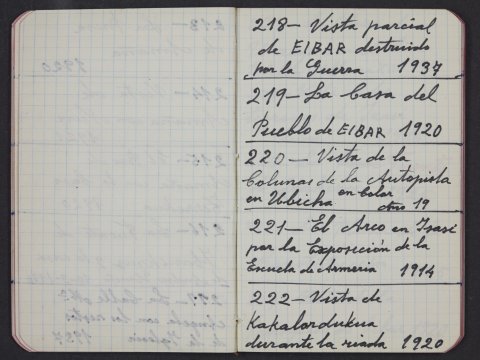 218- Vista parcial
de EIBAR destruido
por la Guerra 1937
219- La Casa del
Pueblo de EIBAR 1920
220- Vista de la
Colunas de la Autopista
en Ubicha en Color
Año 19
221- El Arco en Isasi
por la Exposición de la
Escuela de Armeria 1914
222- Vista de
Kakalardukua
durante la riada 1920